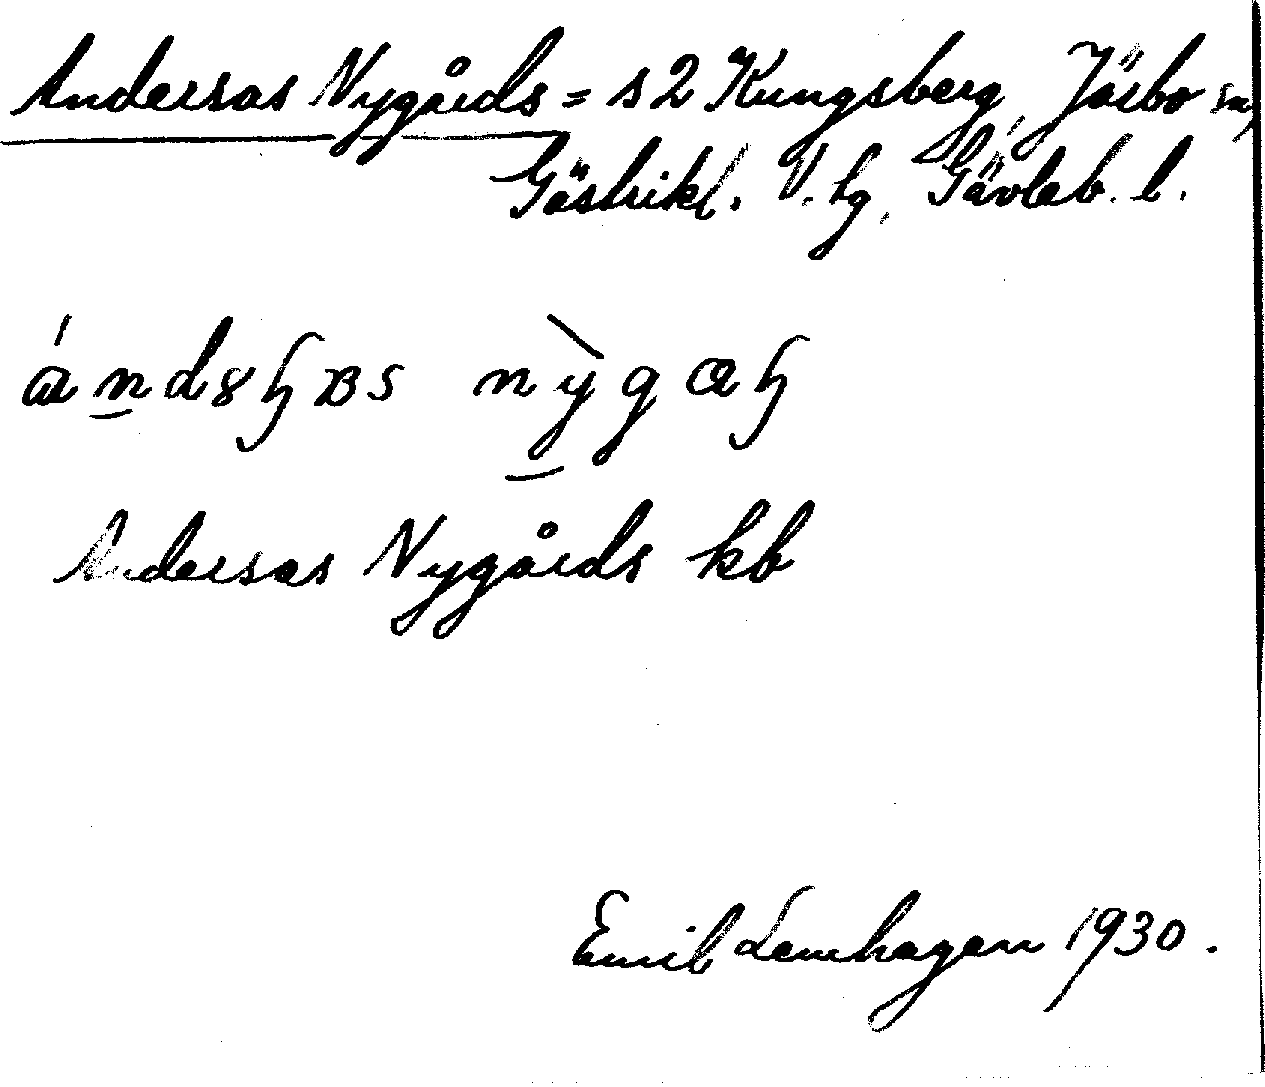 Andersas Nygårds = s 2 Kungsberg, Järbo sn,
Gästrikl. V. tg, Gävleb. l.
nygɑ
Andersas Nygårds kb
Emil Lemhagen 1930.